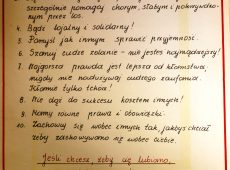 szczególnie pomagaj chorym, słabym i pokrzywdzo-
nym przez los.
4. Bądź lojalny i solidarny!
5. Pomyśl jak innym sprawić przyjemność.
6. Szanuj cudze zdanie - nie jesteś najmądrzejszy!
7. Najgorsza prawda jest lepsza od kłamstwa,
nigdy nie nadużywaj cudzego zaufania.
Kłamie tylko tchórz!
8. Nie dąż do sukcesu kosztem innych!
9. Mamy równe prawa i obowiązki.
10. Zachowuj się wobec innych tak, jakbyś chciał
żeby zachowywano się wobec Ciebie.
Jeśli chcesz, żeby Cię lubiano,